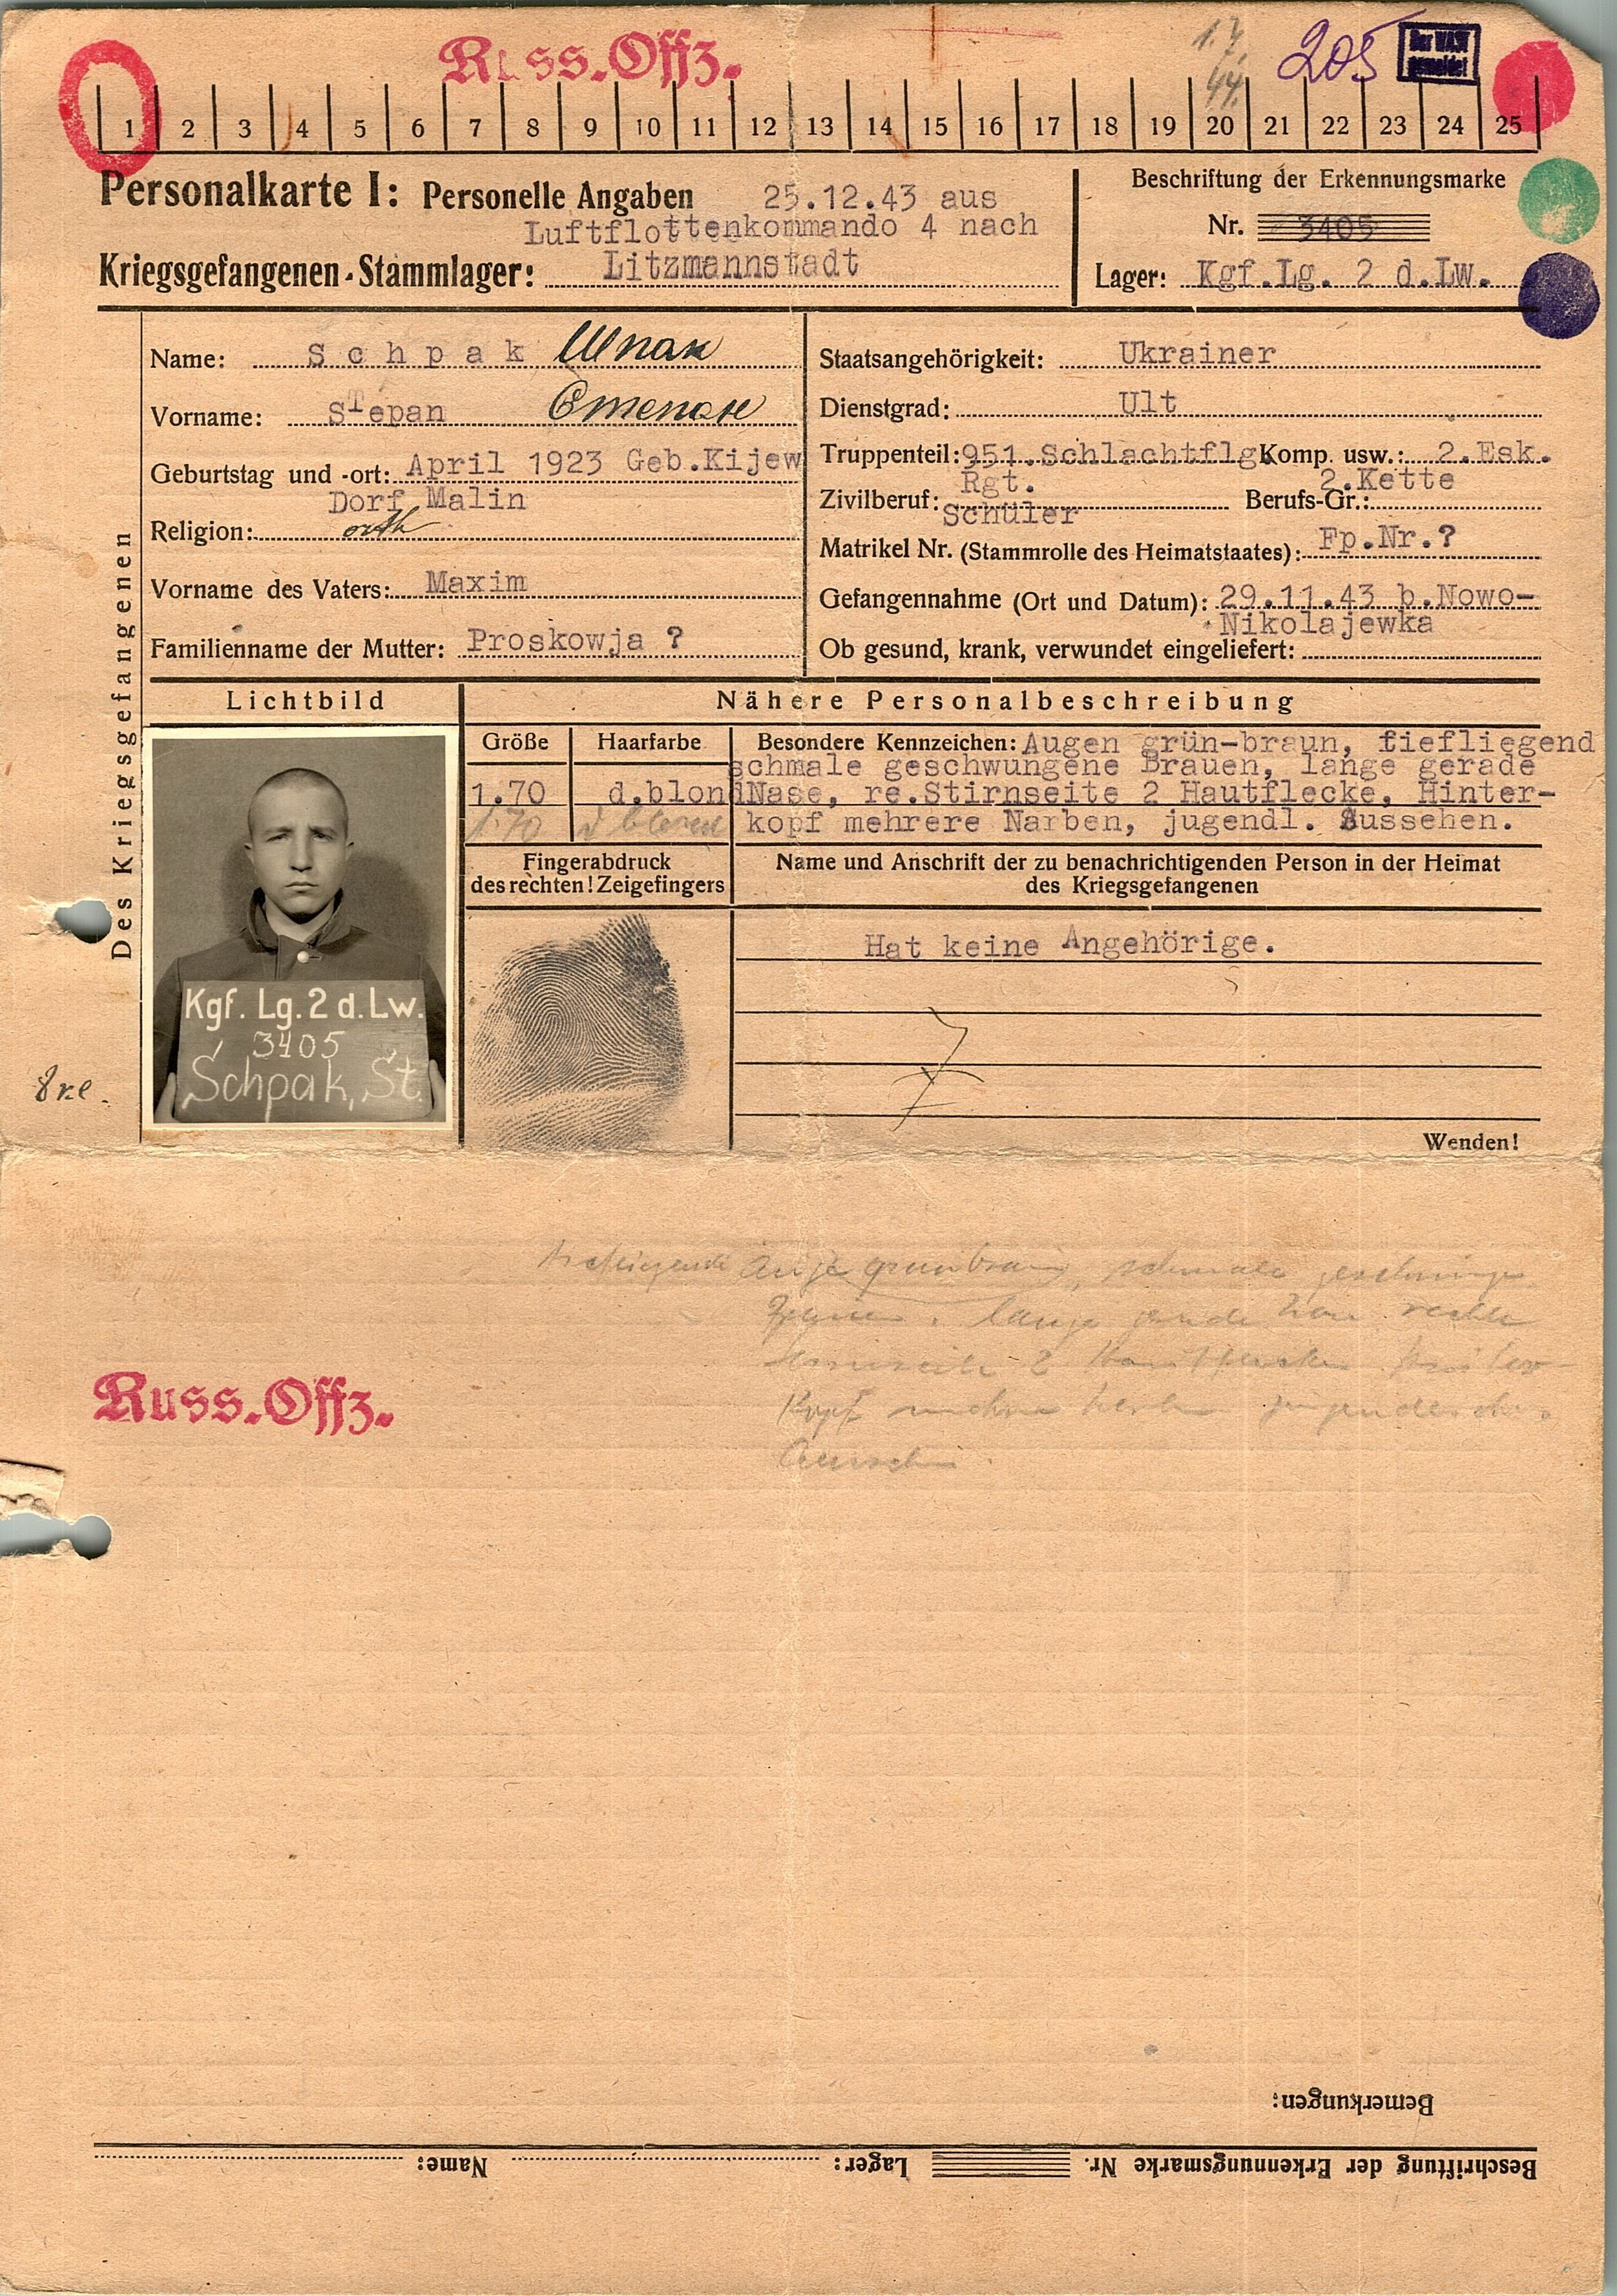 Russ.Offz.
1.7.
44.
205
Der WASt
gemeldet
1 2 3 4 5 6 7 8 9 10 11 12 13 14 15 16 17 18 19 20 21 22 23 24 25
Personalkarte I: Personelle Angaben 25.12.43 aus
Luftflottenkommando 4 nach
Kriegsgefangenen-Stammlager: Litzmannstadt
Beschriftung der Erkennungsmarke
Nr. 3405
Lager: Kgf.Lg. 2 d.Lw.
Des Kriegsgefangenen
Name: Schpak Шпак
Vorname: Stepan Степан
Geburtstag und -ort: April 1923 Geb.Kijew
Dorf Malin
Religion: orth
Vorname des Vaters: Maxim
Familienname der Mutter: Proskowja ?
Staatsangehörigkeit: Ukrainer
Dienstgrad: Ult
Truppenteil: 951.Schlachtflg. Komp. usw.: 2.Esk.
Rgt. 2.Kette
Zivilberuf: Schüler Berufs-Gr.:
Matrikel Nr. (Stammrolle des Heimatstaates): Fp.Nr.?
Gefangennahme (Ort und Datum): 29.11.43 b.Nowo-
Nikolajewka
Ob gesund, krank, verwundet eingeliefert:
Lichtbild
Kgf. Lg. 2 d. Lw.
3405
Schpak, St.
Nähere Personalbeschreibung
Größe
1.70
1.70
Haarfarbe
d.blond
d blond
Besondere Kennzeichen: Augen grün-braun, tiefliegend
schmale geschwungene Brauen, lange gerade
Nase, re.Stirnseite 2 Hautflecke, Hinter-
kopf mehrere Narben, jugendl. Aussehen.
Fingerabdruck
des rechten! Zeigefingers
Name und Anschrift der zu benachrichtigenden Person in der Heimat
des Kriegsgefangenen
Hat keine Angehörige.
Wenden!
Auge grünbraun, schmale
lange gerade rechte
2
Kopf
Russ.Offz.
Bemerkungen:
Beschriftung der Erkennungsmarke Nr. Lager: Name: